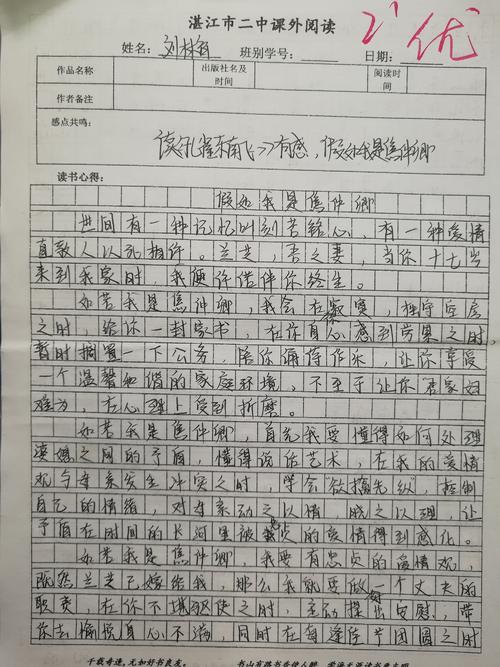 湛江市二中课外阅读
2' 优
姓名: 刘林 班别学号: 日期:
作品名称 出版社名及时间 阅读时间
作者备注
感点共鸣:
读《孔雀东南飞》有感,假如我是焦仲卿
读书心得:
假如我是焦仲卿
世间有一种记忆叫刻苦铭心,有一种爱情
直教人以死相许。兰芝,吾之妻,当你十七岁
来到我家时,我便许偕伴你终生。
如若我是焦仲卿,我会在你寂寞,独守空房
之时,给你一封家书,在你身心感到劳累之时,
暂时搁置一下公务,陪你俩得作水,让你享受
一个温馨和谐的家庭环境,不至于让你君家妇
难为,在心理上受到折磨。
如若我是焦仲卿,首先我要懂得如何处理
婆媳之间的矛盾,懂得说话艺术,在我的爱情
观与母亲发生冲突之时,学会“欲擒先纵”,控制
自己的情绪,对母亲动之以情,晓之以理,让
矛盾在时间的长河里被忠贞的爱情得到感化。
如若我是焦仲卿,我要有忠贞的爱情观,
既然兰芝已嫁给我,那么我就要做每一个丈夫的
职责,在你不堪驱使之时,主动提出安慰,带
你去愉悦身心不满,同时在每逢佳节团圆之时
千载奇逢,无如好书良友。